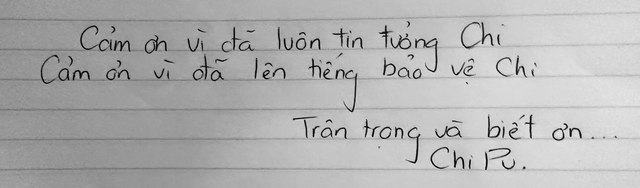 Cảm ơn vì đã luôn tin tưởng Chi
Cảm ơn vì đã lên tiếng bảo vệ Chi
Trân trọng và biết ơn...
Chi Pu.